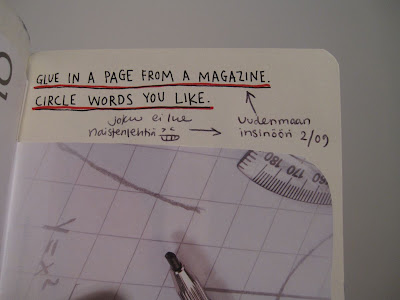 GLUE IN A PAGE FROM A MAGAZINE.
CIRCLE WORDS YOU LIKE.
joku ei lue
naistenlehtiä
Uudenmaan
insinööri 2/09
180 170 160
y = x²